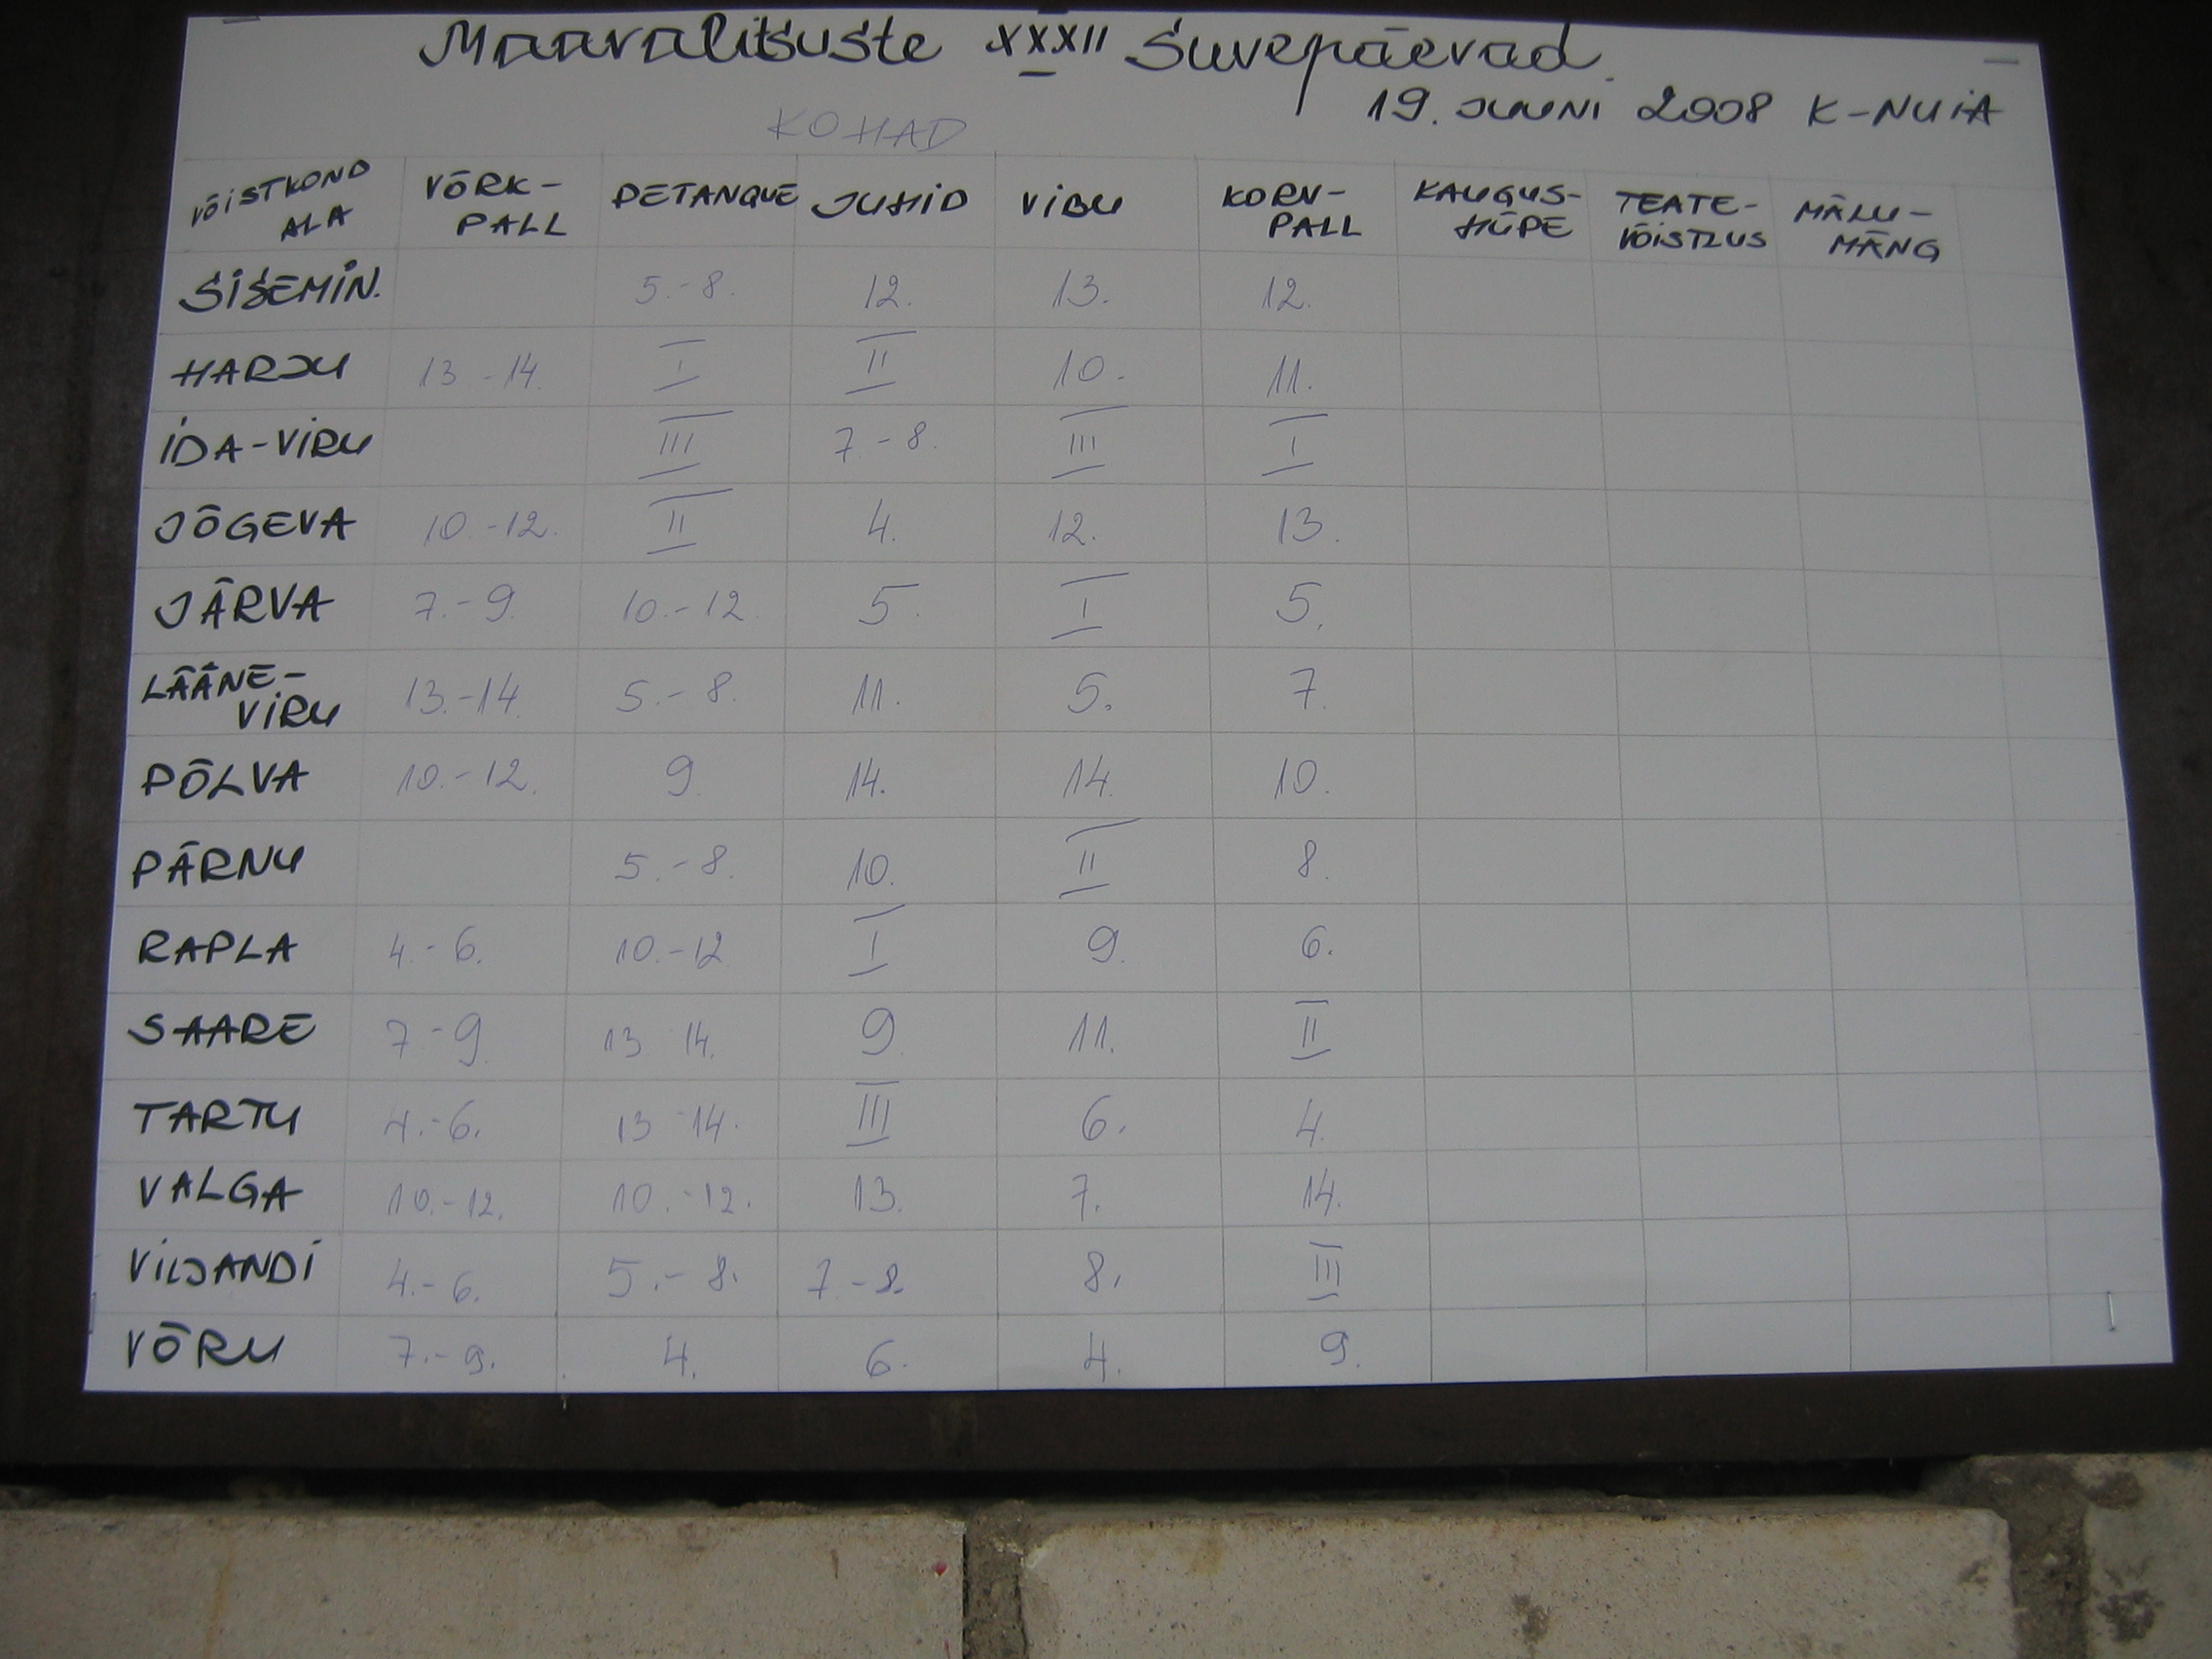 Maavalitsuste XXXII Suvepäevad.
19. JUUNI 2008 K-NUIA
KOHAD
VÕISTKOND ALA VÕRK-PALL PETANQUE JUHID VIBU KORV-PALL KAUGUS-HÜPE TEATE-VÕISTLUS MÄLU-MÄNG
SISEMIN. 5.-8. 12. 13. 12.
HARJU 13-14. I II 10. 11.
IDA-VIRU III 7-8. III I
JÕGEVA 10.-12. II 4. 12. 13.
JÄRVA 7.-9. 10.-12. 5. I 5.
LÄÄNE-VIRU 13.-14. 5.-8. 11. 5. 7.
PÕLVA 10.-12. 9. 14. 14. 10.
PÄRNU 5.-8. 10. II 8.
RAPLA 4.-6. 10.-12 I 9. 6.
SAARE 7-9. 13 14. 9. 11. II
TARTU 4.-6. 13-14. III 6. 4.
VALGA 10.-12. 10.-12. 13. 7. 14.
VILJANDI 4.-6. 5.-8. 7-8. 8. III
VÕRU 7.-9. 4. 6. 4. 9.